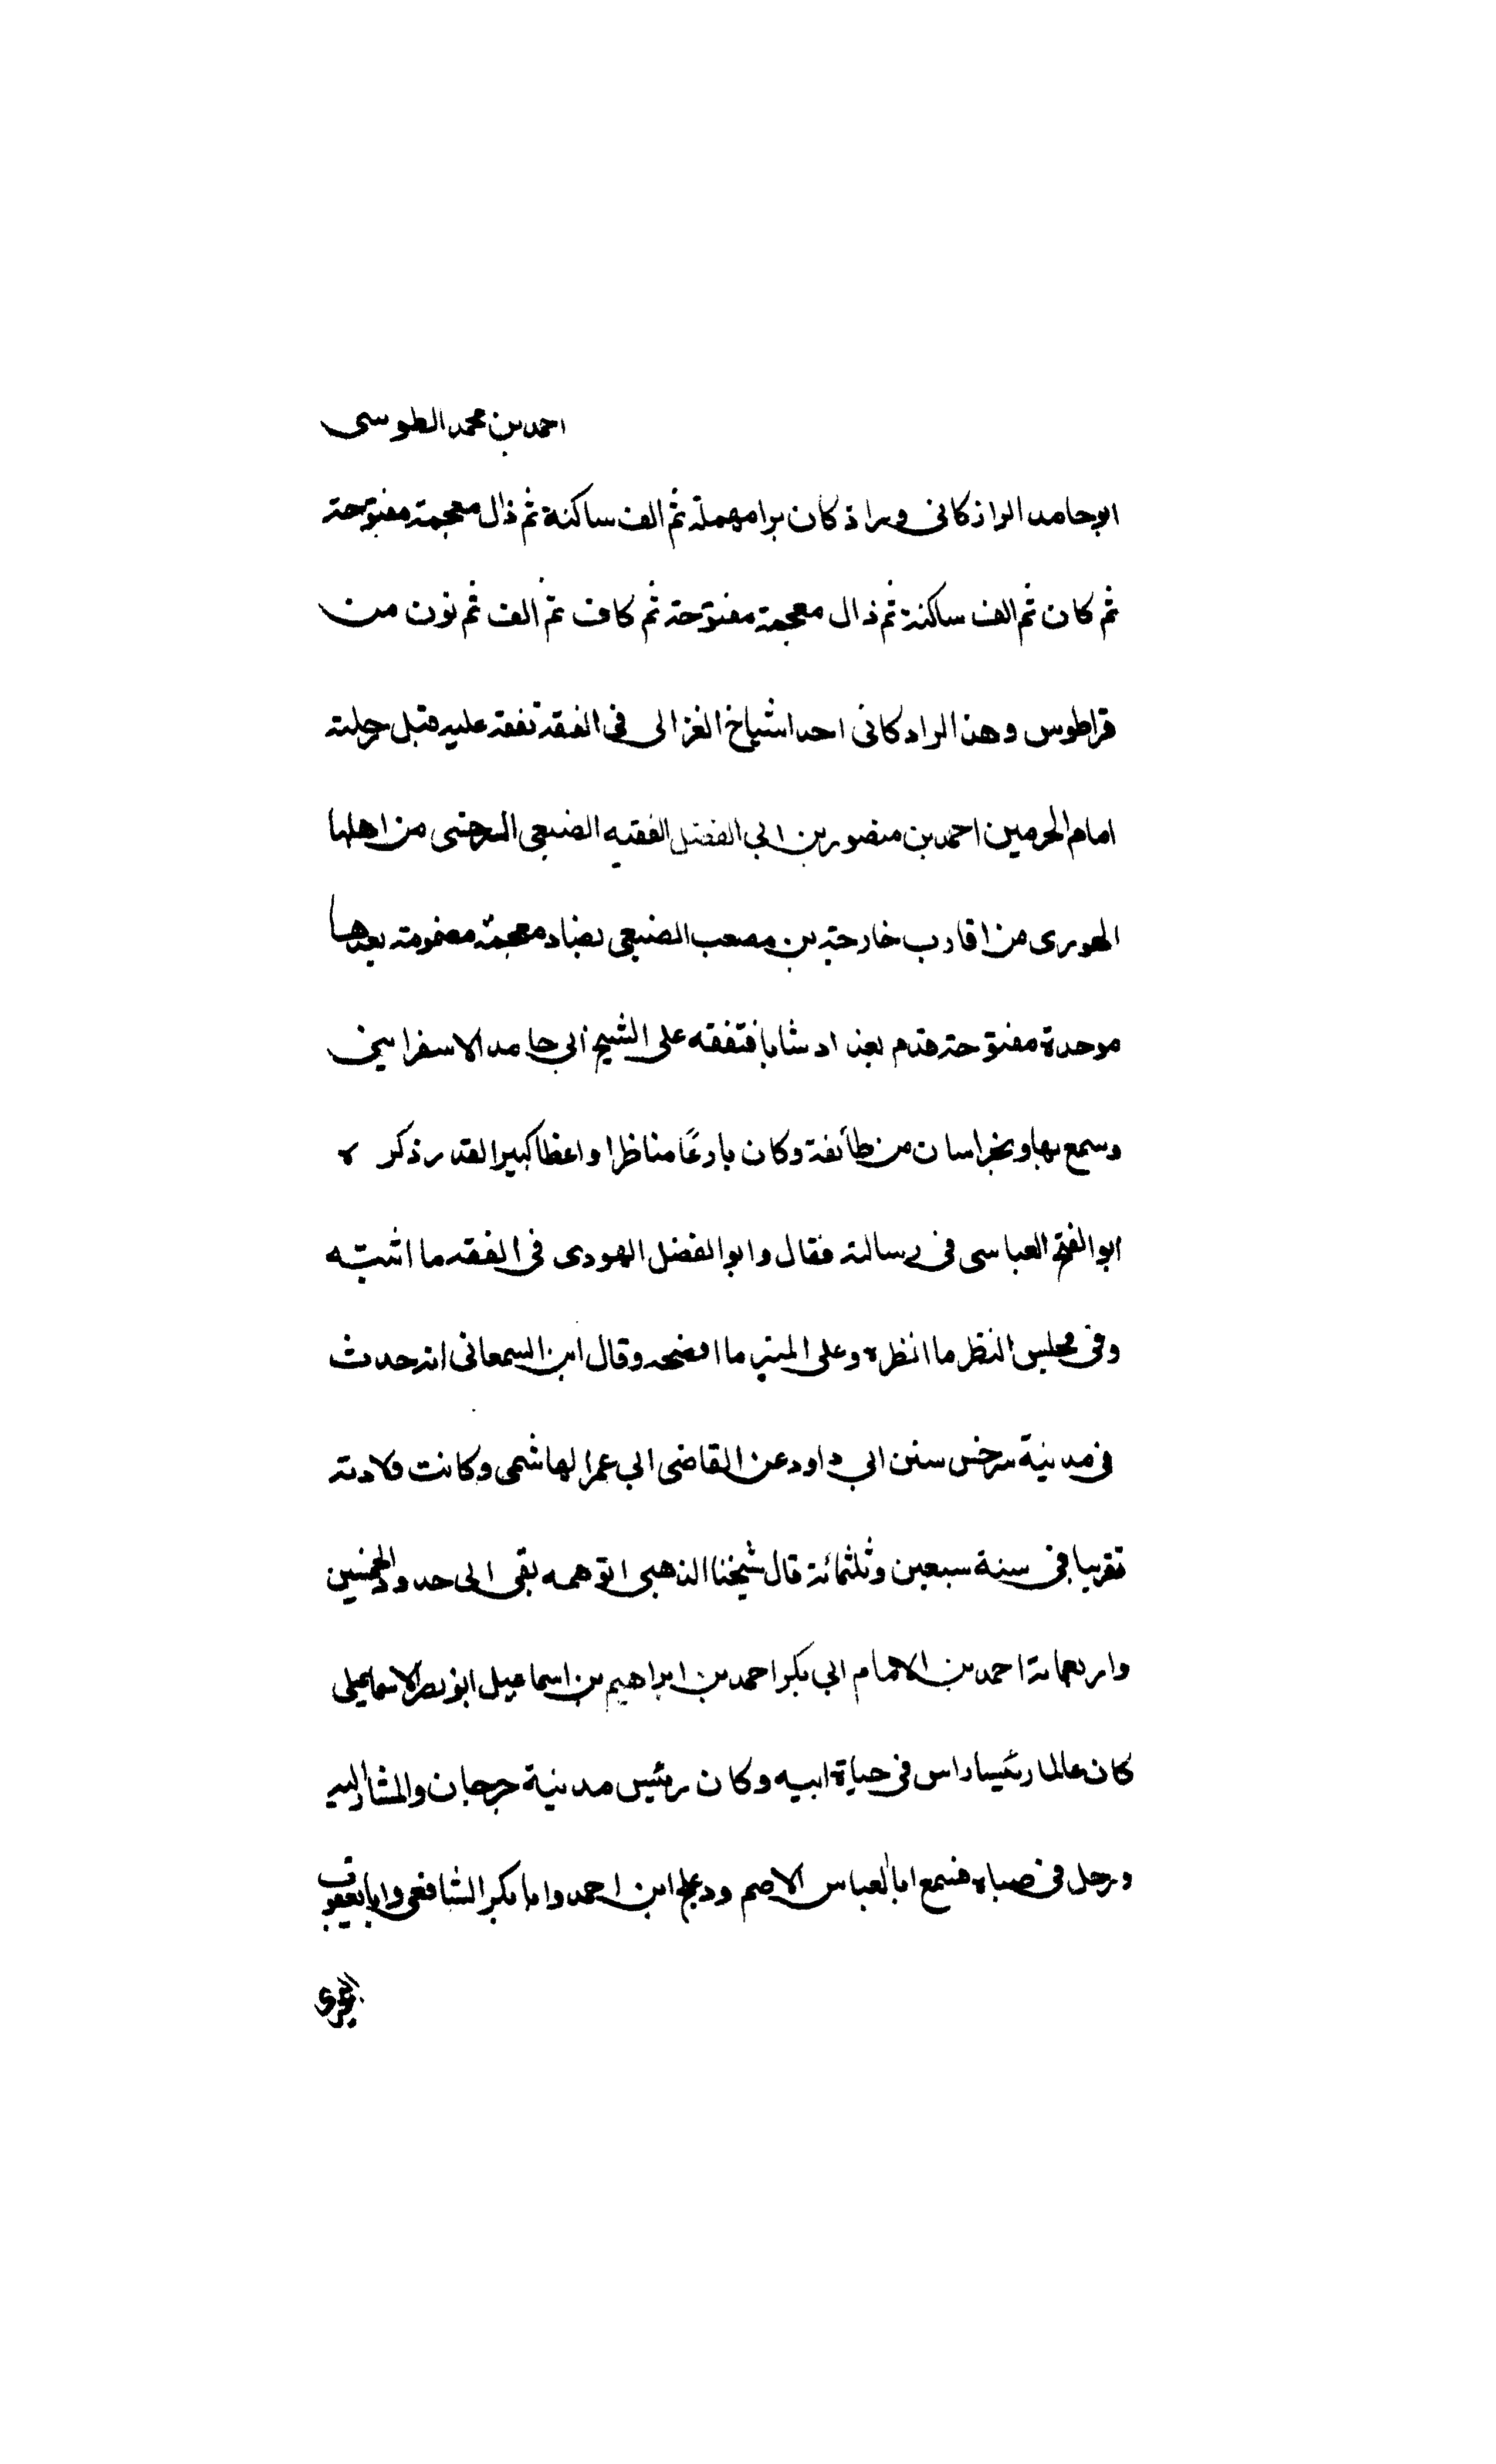 احمد بن محمد الطوسى
ابو حامد الراذكانى وراذكان برا مهملة ثم الف ساكنة ثم ذال معجمة مفتوحة
ثم كان ثم الف ساكنة ثم ذال معجمة مفتوحة ثم كاف ثم الف ثم نون من
قراطوس وهذا الرادكانى احد اشياخ الغزالى فى الفقه تفقه عليه قبل رحلته
امام الحرمين احمد بن منصور بن ابي الفضل الفقيه الضبعى السرخسى من اهلها
الهورى من اقارب خارجة بن مصعب الضبعى بضاد معجمة مضمومة بعدها
موحدة مفتوحة قدم بغداد شابا فتفقه على الشيخ ابي حامد الاسفراينى
وسمع بها وبخراسان من طائفة وكان بارعًا مناظرا واعظا كبير القدر ذكره
ابو الفتح العباسى فى رسالته فقال وابو الفضل الهودى فى الفقه ما اثبته
وفى مجلس النظر ما انظره وعلى المنبر ما افضحه وقال ابن السمعانى انه حدث
فى مدينة سرخس سنن ابي داود عن القاضى ابي عمر الهاشمى وكانت ولادته
تقريبا فى سنة سبعين وثلثمائة قال شيخنا الذهبى اتوهمه بقى الى حدود الخمسين
واربعمائة احمد بن الامام ابي بكر احمد بن ابراهيم بن اسماعيل ابو نصر الاسماعيلى
كان عالما رئيسا راس فى حياة ابيه وكان رئيس مدينة جرجان والمشار اليه
ورحل فى صباه فسمع ابا العباس الاصم ودعلج ابن احمد وابا بكر الشافعى وابا يعقوب